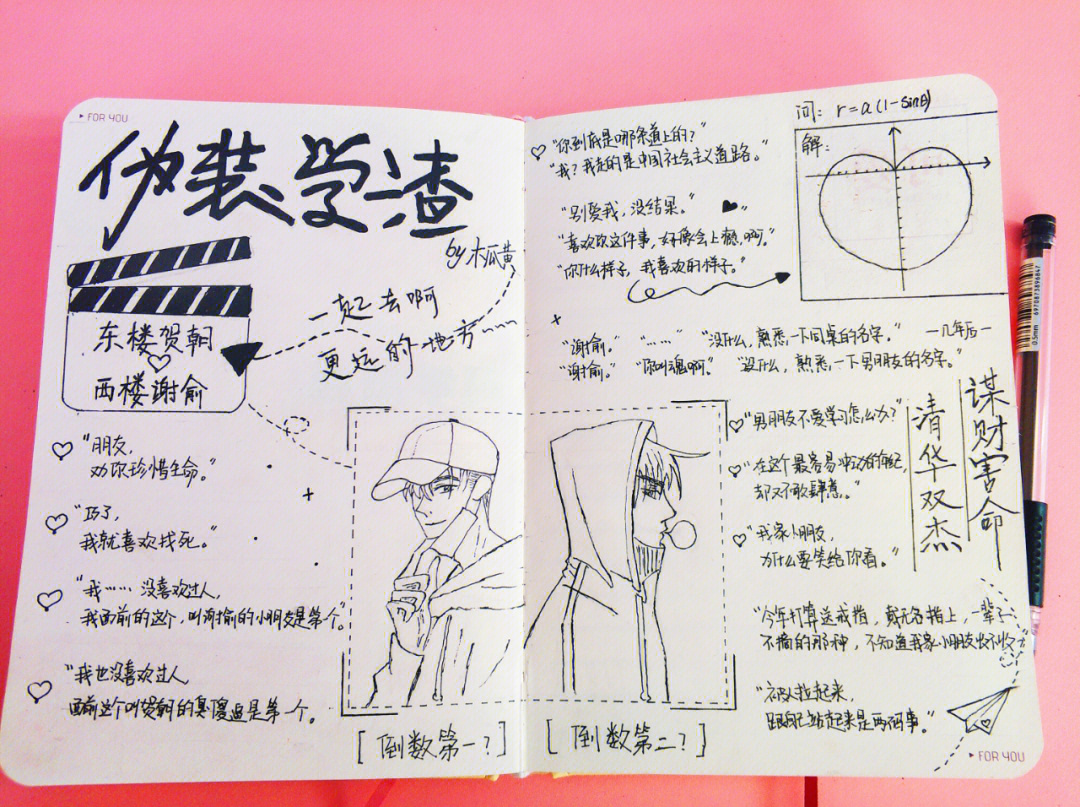 FOR YOU
伪装学渣
by 木瓜黄
东楼贺朝
西楼谢俞
一起去啊
更远的地方……
"朋友,
劝你珍惜生命。"
"巧了,
我就喜欢找死。"
"我……没喜欢过人,
我面前的这个,叫谢俞的小朋友是第一个"
"我也没喜欢过人
面前这个叫贺朝的臭傻逼是第一个。
[倒数第一?]
"你到底是哪条道上的?"
"我?我走的是中国社会主义道路。"
"别爱我,没结果。"
"喜欢你这件事,好像会上瘾啊。"
"你什么样子,我喜欢的样子。"
问: r=a(1-sinθ)
解:
"谢俞。" "……" "没什么,熟悉一下同桌的名字。" 一几年后一
"谢俞。" "你叫魂啊。" "没什么,熟悉一下男朋友的名字。"
"男朋友不爱学习怎么办?"
"在这个最容易冲动的年纪,
却又不敢肆意。"
"我家小朋友,
为什么要笑给你看。"
谋财害命
清华双杰
"今年打算送戒指,戴无名指上,一辈子
不摘的那种,不知道我家小朋友收不收"
"被人拉起来,
跟自己站起来是两码事。"
[倒数第二?]
FOR YOU
0.5mm
6970873896847